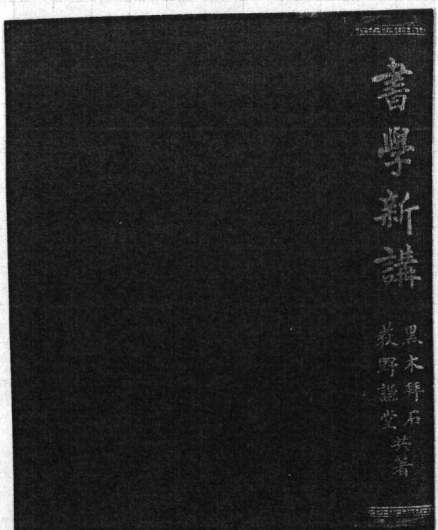 書學新講
黒木拜石
荻野謙堂 共著